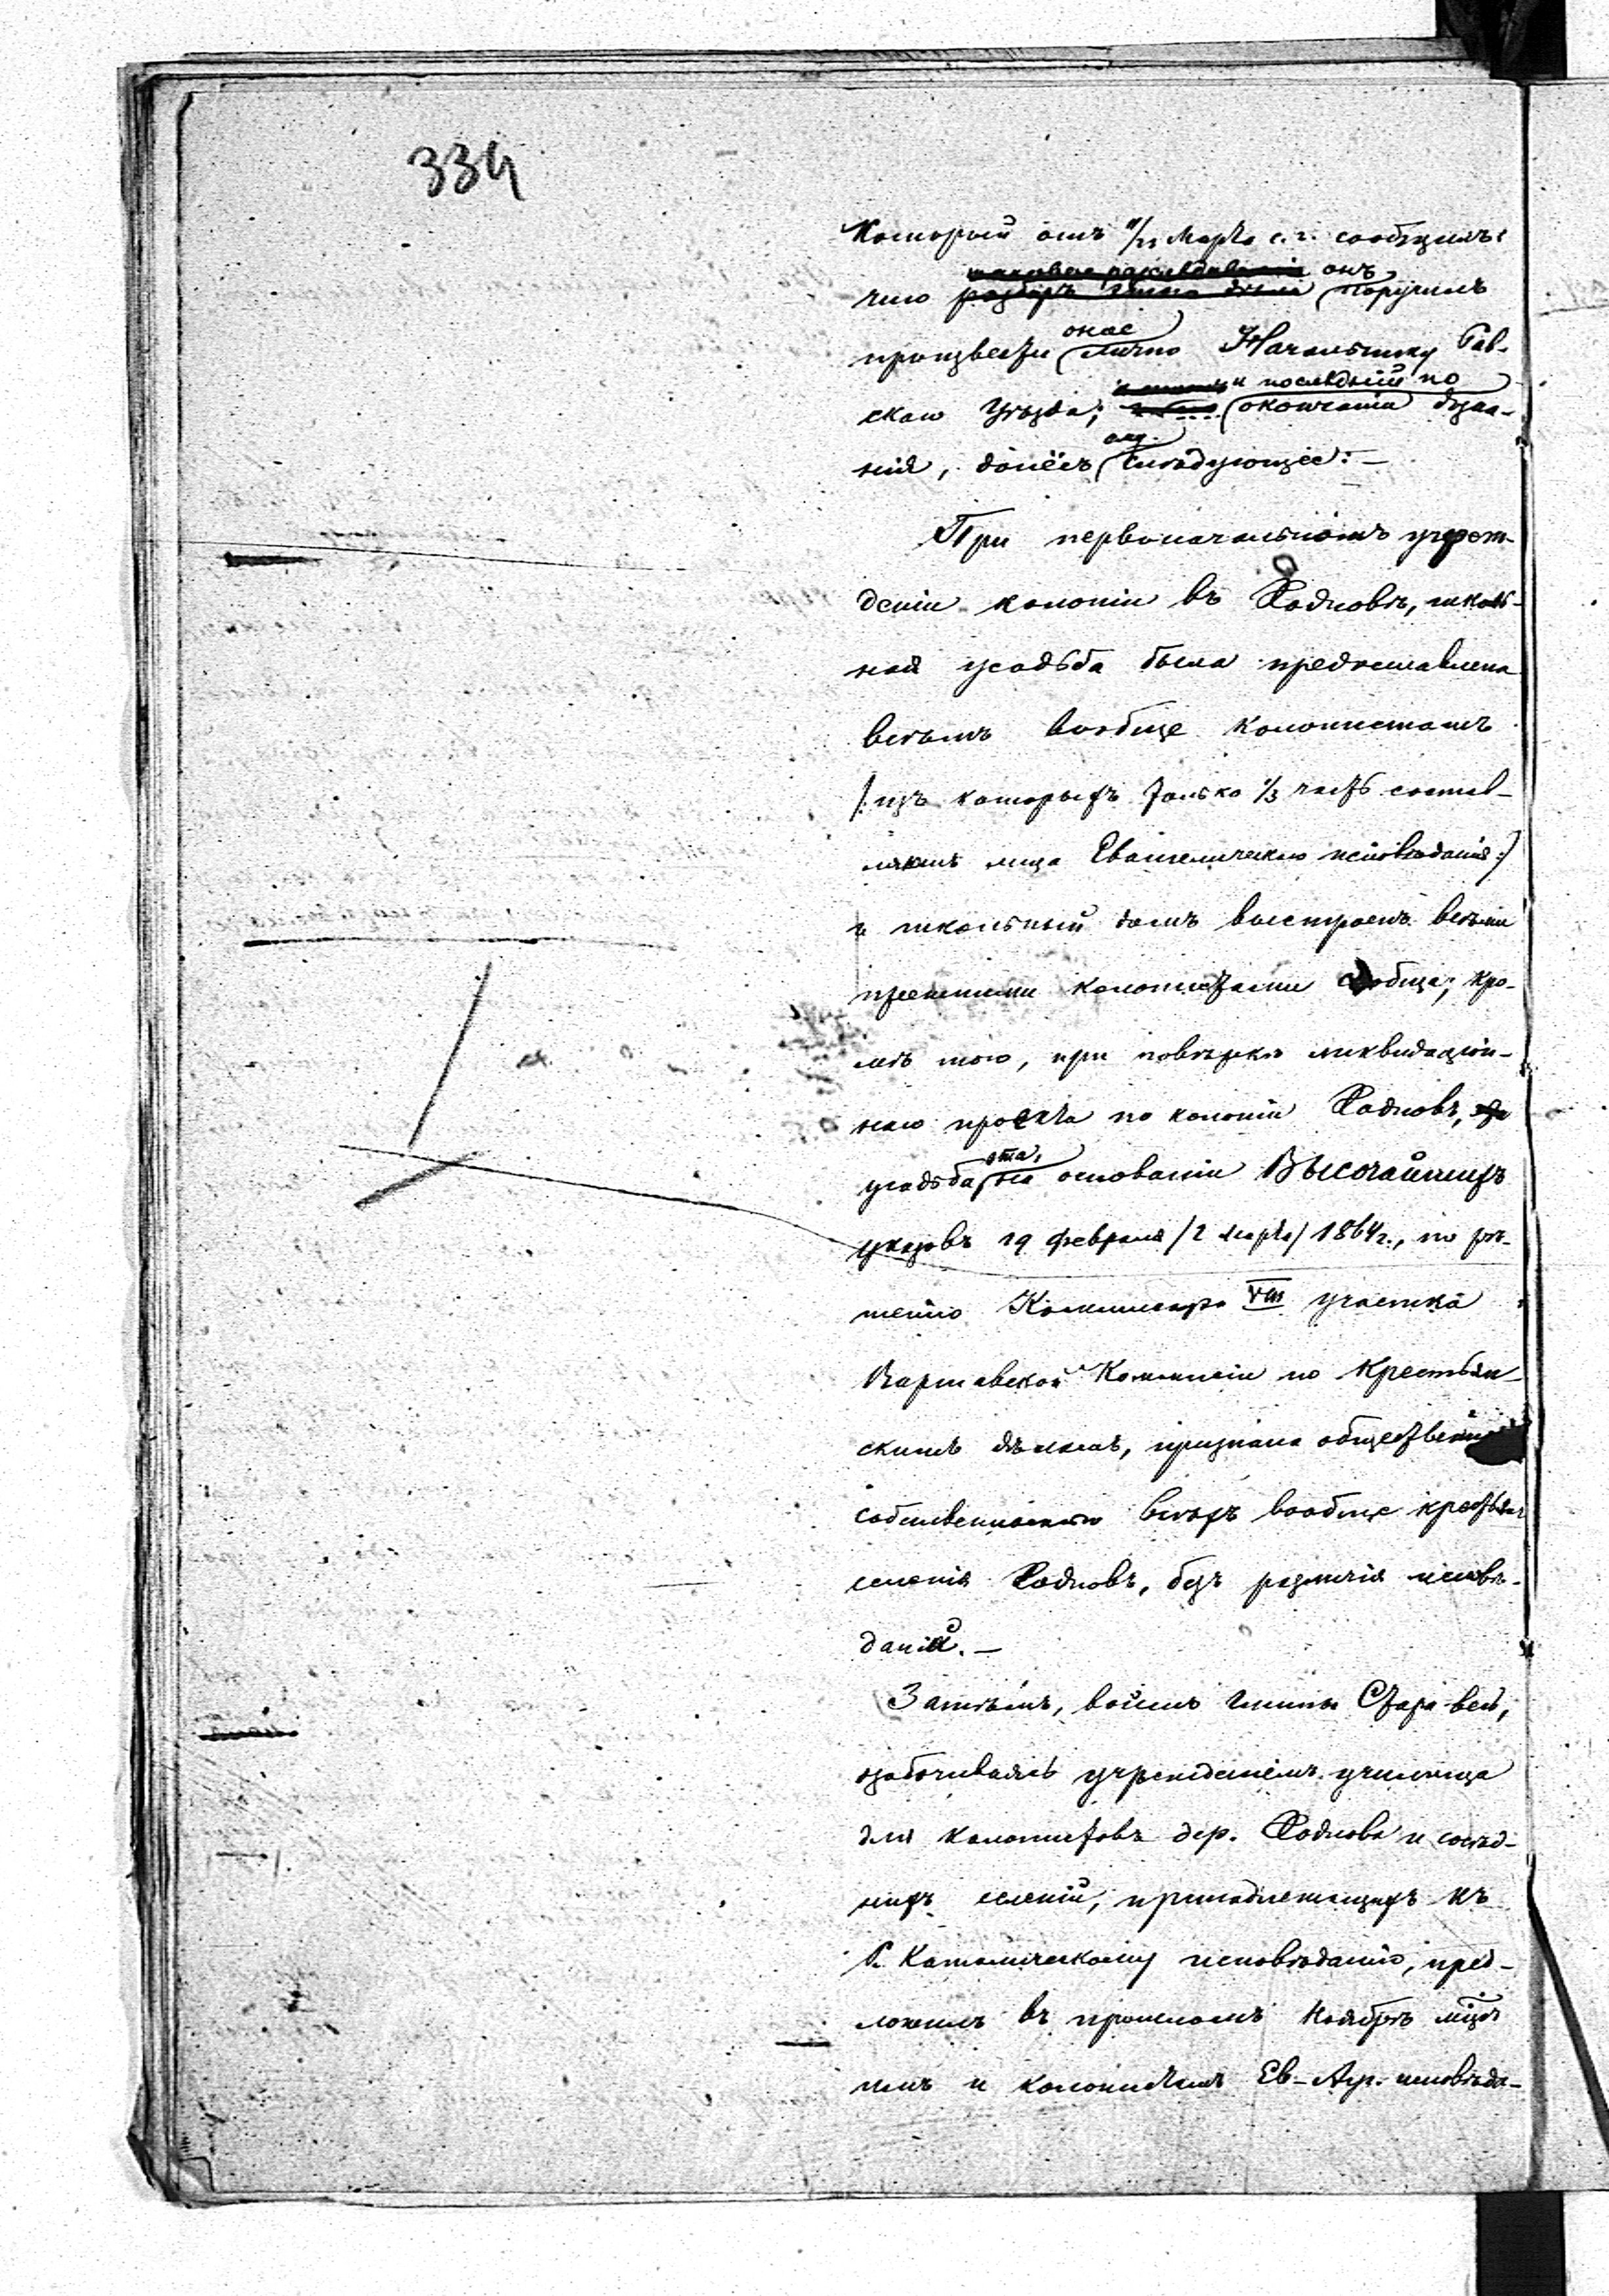 334
Который отъ 11/23 Марта с. г. сообщилъ
таковое разслѣдованіе онъ
что разборъ этого дѣла поручилъ
оное
произвести лично Начальнику Рав-
и последній по
скаго Уѣзда; окончаніи дозна-
нія, донёсъ слѣдующее:—
При первоначальномъ учреж-
деніи колоніи въ Радновѣ, школь-
ная усадьба была предоставлена
всѣмъ вообще колонистамъ
/:изъ которыхъ только 1/3 часть состав-
ляютъ лица Евангелическаго исповѣданія:/
и школьный домъ выстроенъ всѣми
прежними колонистами сообща; кро-
мѣ того, при повѣркѣ ликвидаціон-
наго проекта по колоніи Радновъ,
эта,
усадьба на основаніи Высочайшихъ
указовъ 19 февраля /2 марта/ 1864 г., по рѣ-
шенію Коммисара VIII участка
Варшавской Коммисіи по Крестьян-
скимъ дѣламъ, признана обществен
собственностью всѣхъ вообще крестьянъ
селенія Радновъ, безъ различія исповѣ-
даній.—
Затѣмъ, войтъ гмины Стара-весь,
озабочиваясь учрежденіемъ училища
для колонистовъ дер. Раднова и сосѣд-
нихъ селеній, принадлежащихъ къ
Р. Католическому исповѣданію, пред-
ложилъ въ прошломъ Ноябрѣ мѣцѣ
имъ и колонистамъ Ев-Ауг. исповѣда-